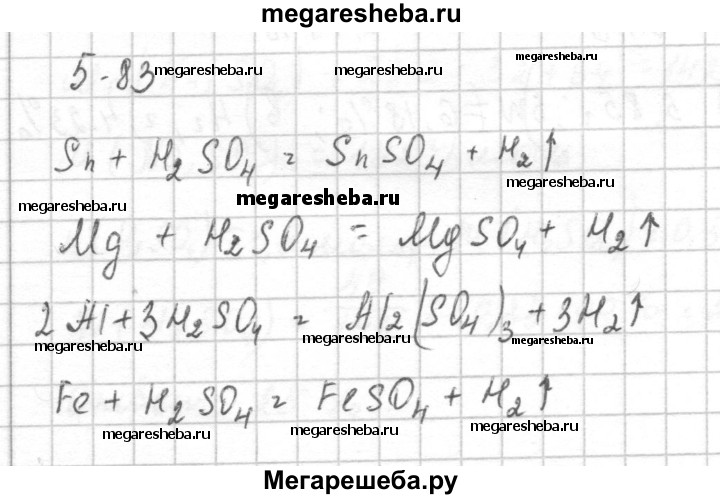 megaresheba.ru
5-83 megaresheba.ru megaresheba.ru megaresheba.ru
Sn + H2SO4 = SnSO4 + H2↑
megaresheba.ru megaresheba.ru megaresheba.ru
Mg + H2SO4 = MgSO4 + H2↑
2Al + 3H2SO4 = Al2(SO4)3 + 3H2↑
megaresheba.ru megaresheba.ru megaresheba.ru
Fe + H2SO4 = FeSO4 + H2↑
megaresheba.ru megaresheba.ru megaresheba.ru
Мегарешеба.ру